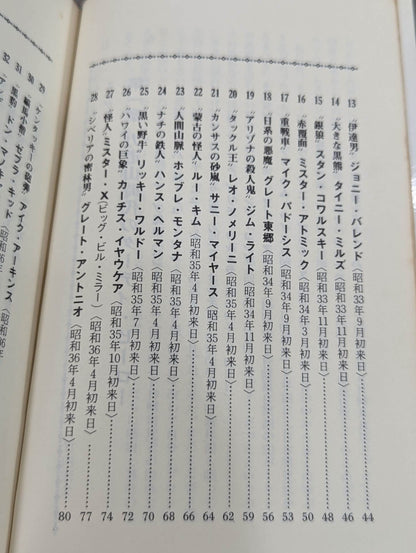 13 “伊達男” ジョニー・バレンド〈昭和33年9月初来日〉 44
14 “大きな黒熊” タイニー・ミルズ〈昭和33年11月初来日〉 46
15 “銀狼” スタン・コワルスキー〈昭和33年11月初来日〉 48
16 “赤覆面” ミスター・アトミック〈昭和34年3月初来日〉 50
17 “重戦車” マイク・パドーシス〈昭和34年9月初来日〉 53
18 “日系の悪魔” グレート東郷〈昭和34年9月初来日〉 56
19 “アリゾナの殺人鬼” ジム・ライト〈昭和34年11月初来日〉 59
20 “タックル王” レオ・ノメリーニ〈昭和35年4月初来日〉 62
21 “カンサスの砂嵐” サニー・マイヤース〈昭和35年4月初来日〉 64
22 “蒙古の怪人” ルー・キム〈昭和35年4月初来日〉 66
23 “人間口豚” ホンブレ・モンタナ〈昭和35年4月初来日〉 68
24 “ナチの鉄人” ハンス・ヘルマン〈昭和35年4月初来日〉 70
25 “黒い野牛” リッキー・ワルドー〈昭和35年7月初来日〉 72
26 “ハワイの巨象” カーチス・イヤウケア〈昭和35年10月初来日〉 74
27 “怪人” ミスター・X(ビッグ・ビル・ミラー)〈昭和36年4月初来日〉 77
28 “シベリアの密林男” グレート・アントニオ〈昭和36年4月初来日〉 80
29 “ケンタッキーの爆弾” アイク・アーキンス〈昭和36年
30 ゼブラ・キッド〈昭和
31 “黒豹” ドン・マノキ
32